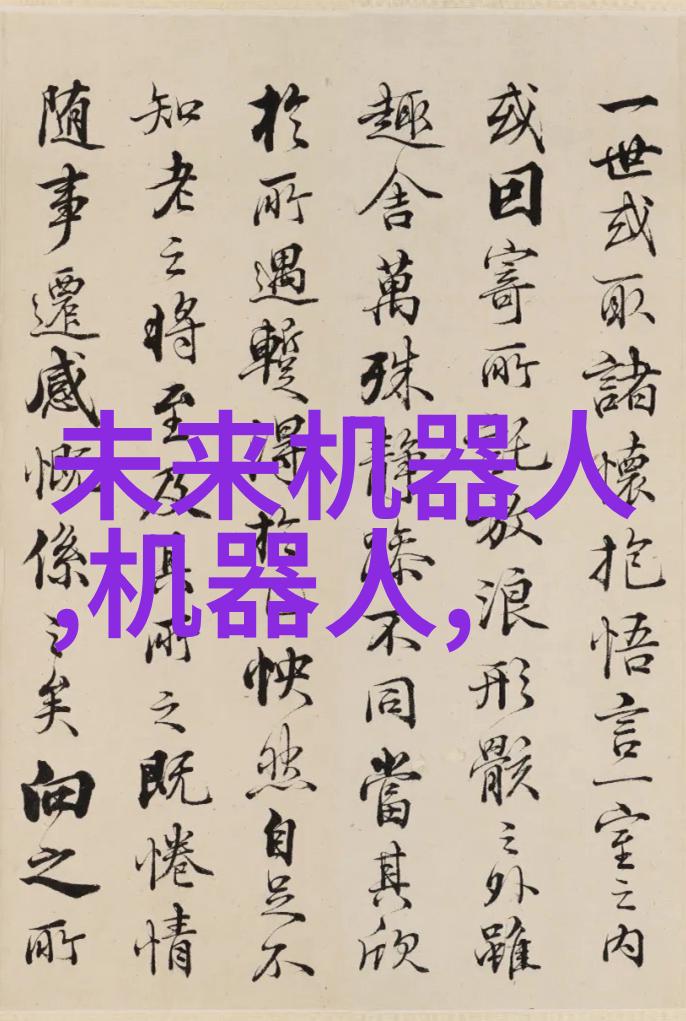 一世或取諸懷抱悟言一室之內
或因寄所託放浪形骸之外雖
趣舍萬殊靜躁不同當其欣
於所遇暫得於己怏然自足不
知老之將至及其所之既惓情
随事遷感慨係之矣向之所
未来机器人
,机器人,